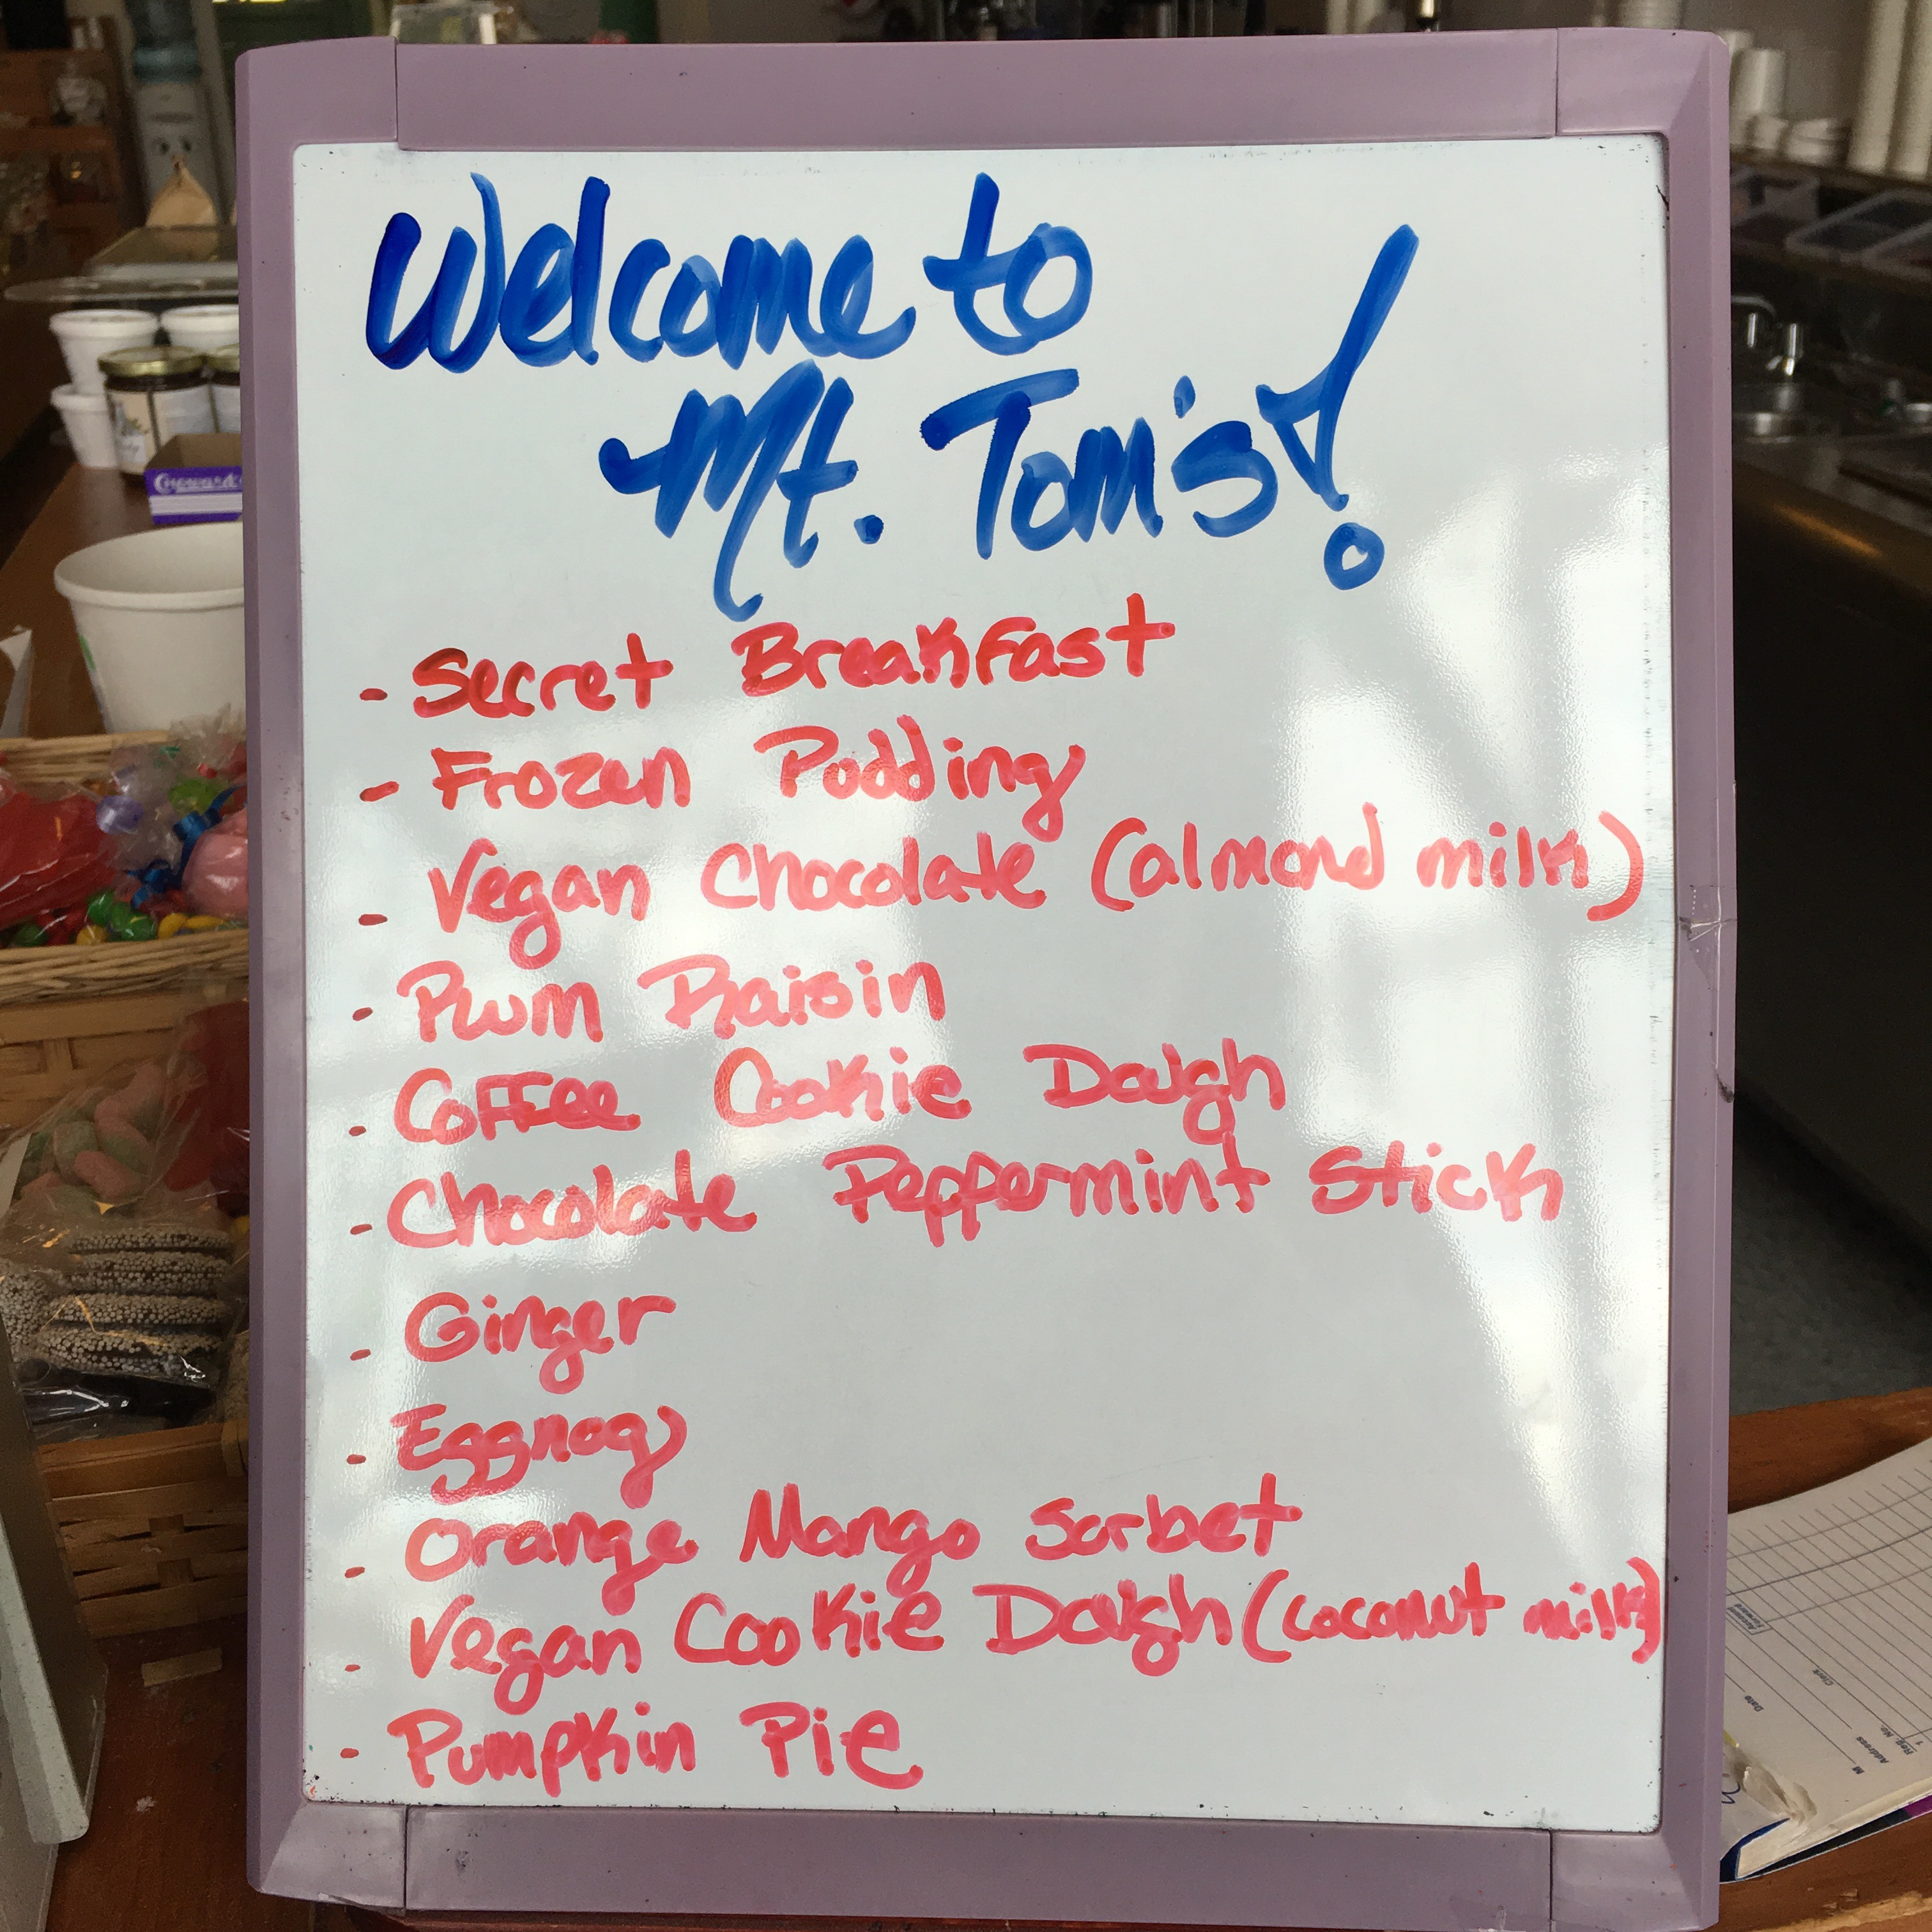 Welcome to
Mt. Tom's!
- Secret Breakfast
- Frozen Pudding
- Vegan Chocolate (almond milk)
- Rum Raisin
- Coffee Cookie Dough
- Chocolate Peppermint Stick
- Ginger
- Eggnog
- Orange Mango Sorbet
- Vegan Cookie Dough (coconut milk)
- Pumpkin Pie
Choward's
Account Forward
Clerk
Date
Reg. No.
Address
M